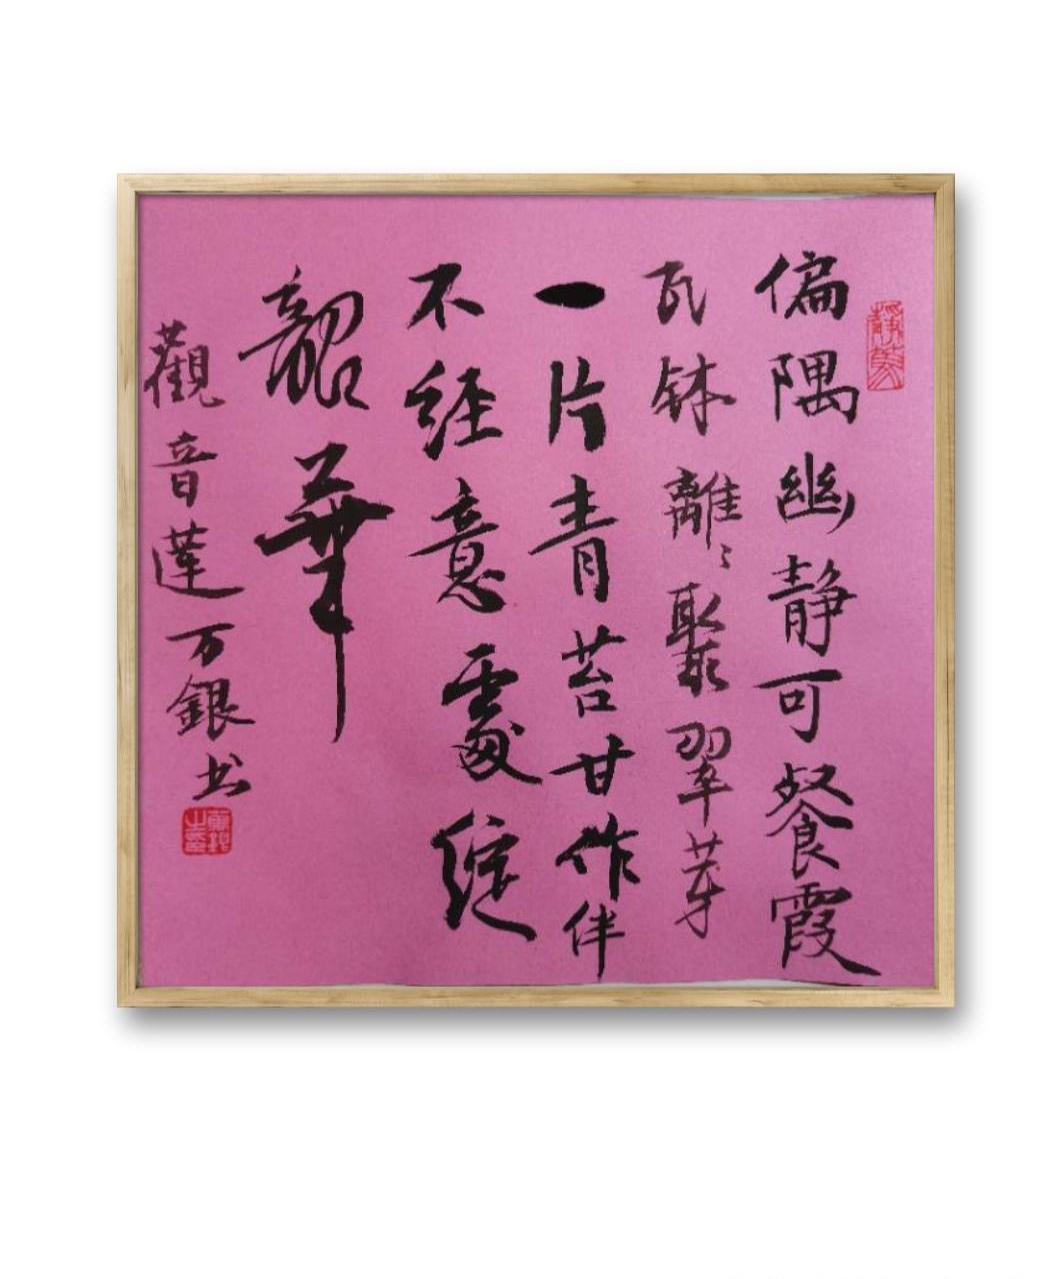 偏隅幽静可餐霞
瓦钵離〻聚翠芽
一片青苔甘作伴
不经意處绽
韶華
觀音蓮万銀书
静美